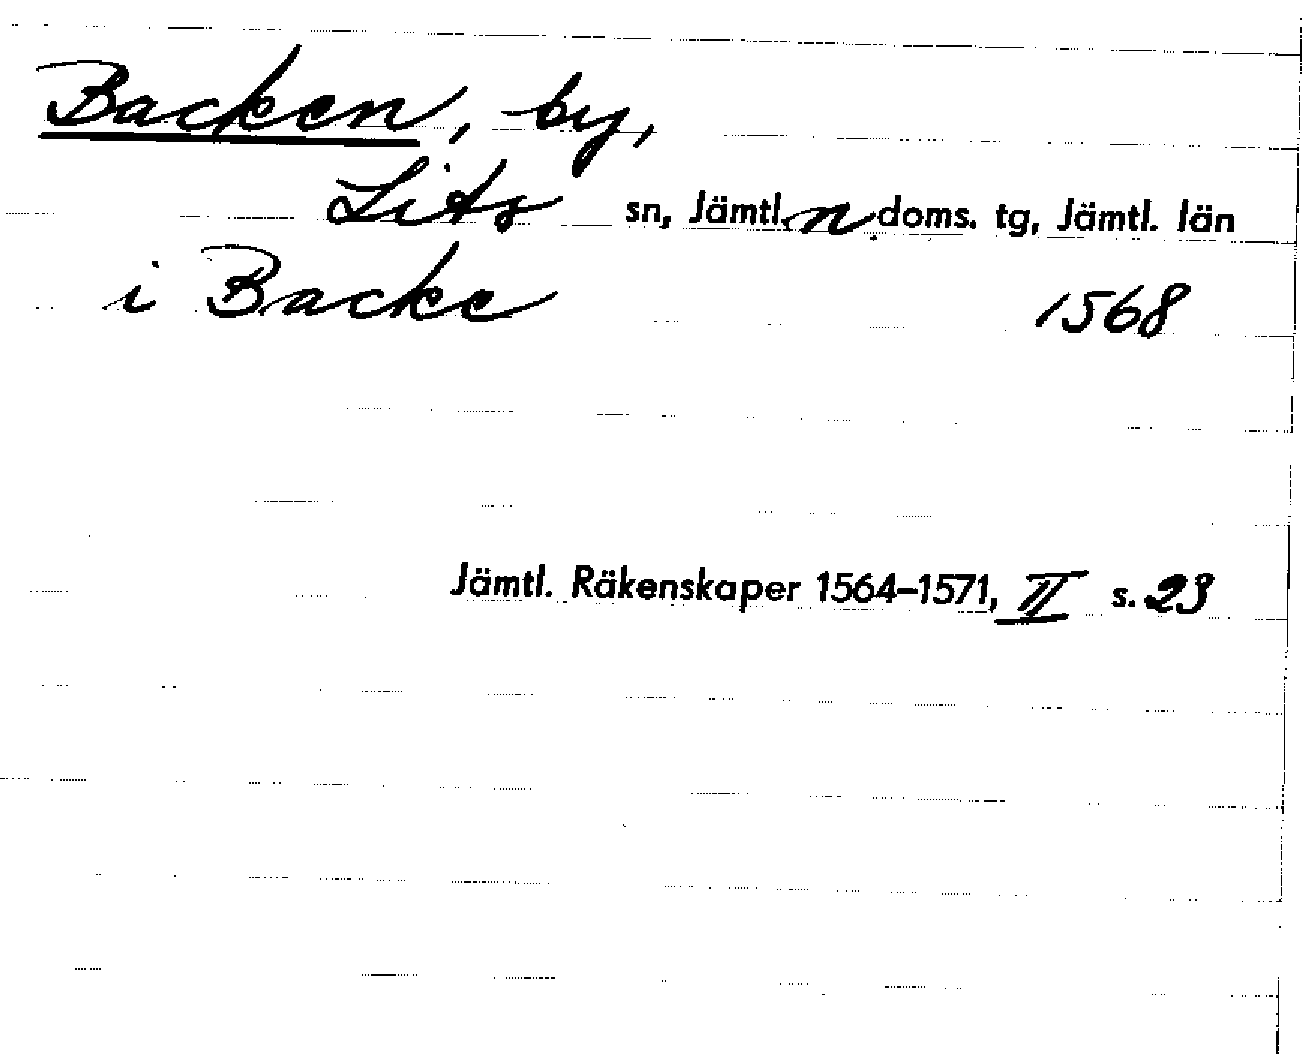 Backen, by,
Lits sn, Jämtl. n doms. tg, Jämtl. län
i Backe 1568
Jämtl. Räkenskaper 1564–1571, II s. 23